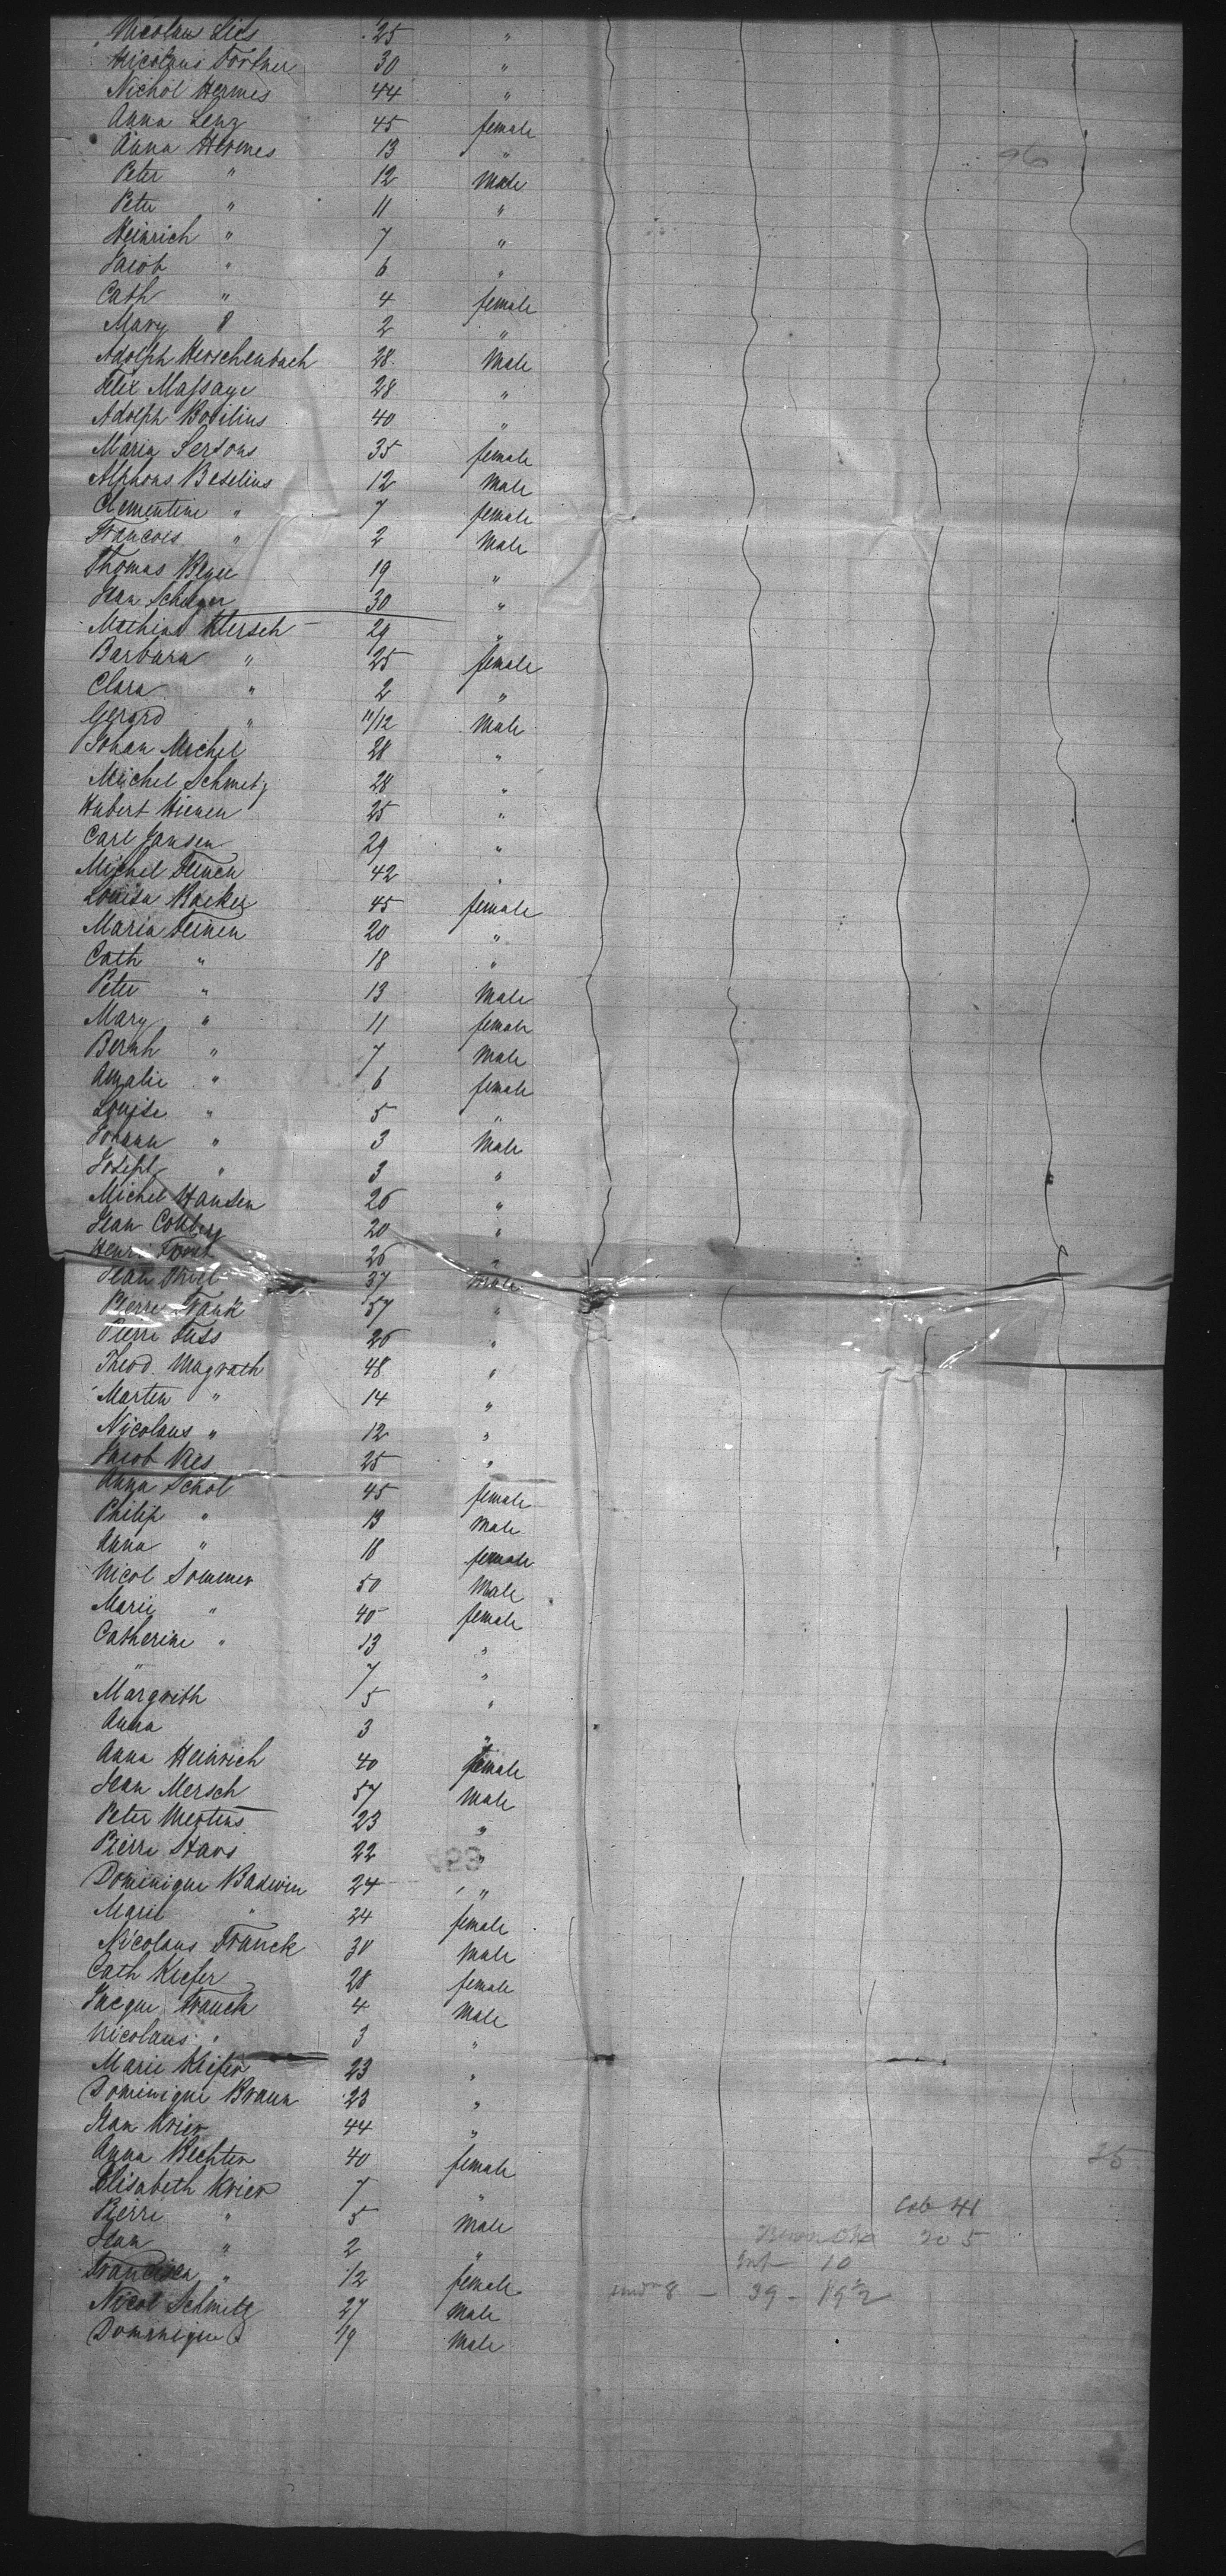 Nicolau Lies 25 "
Nicolaus Fortner 30 "
Nichol Hermes 44 "
Anna Lenz 45 female
Anna Hermes 13 "
Peter " 12 Male
Peter " 11 "
Heinrich " 7 "
Jacob " 6 "
Cath " 4 female
Mary " 2 "
Adolph Herschenbach 28 Male
Felix Massaye 28 "
Adolph Bosilius 40 "
Maria Sersons 35 female
Alphons Beselius 12 Male
Clementine " 7 female
Francois " 2 Male
Thomas Beyer 19 "
Jean Scheyer 30 "
Mathias Klersch 29 "
Barbara " 25 female
Clara " 2 "
Gerard " 11/12 Male
Johan Michel 28 "
Michel Schmetz 28 "
Hubert Hienen 25 "
Carl Jansen 29 "
Michel Feinen 42 "
Louisa Backer 45 female
Maria Feinen 20 "
Cath " 18 "
Peter " 13 Male
Mary " 11 female
Bernh " 7 Male
Amalie " 6 female
Louise " 5 "
Johann " 3 Male
Joseph " 3 "
Michel Hansen 26 "
Jean Collberg 20 "
Henri 26 "
Jean 37 Male
Pierre Frank 57 "
Pierre Fuss 26 "
Theod. Magrath 48 "
Marten " 14 "
Nicolaus " 12 "
Jacob Kies 25 "
Anna Schol 45 female
Philip " 13 Male
Anna " 18 female
Nicol Sommer 50 Male
Marie " 40 female
Catherine " 13 "
" 7 "
Margreth 5 "
Anna 3 "
Anna Heinrich 40 female
Jean Mersch 57 Male
Peter Mertens 23 "
Pierre Staos 22 "
Dominique Badwin 24 "
Marie " 24 female
Nicolaus Franck 30 Male
Cath Kiefer 28 female
Jacque Franck 4 Male
Nicolaus " 3 "
Marie Kiefer 23 "
Dominique Braun 23 "
Jean Krier 44 "
Anna Bechter 40 female
Elisabeth Krier 7 "
Pierre " 5 Male
Jean " 2 "
Francisca " /12 female
Nicol Schmitz 27 Male
Dominique 19 Male
96
25
Cab 41
20 5
Inf 10
und 8 - 39 - 19 1/2